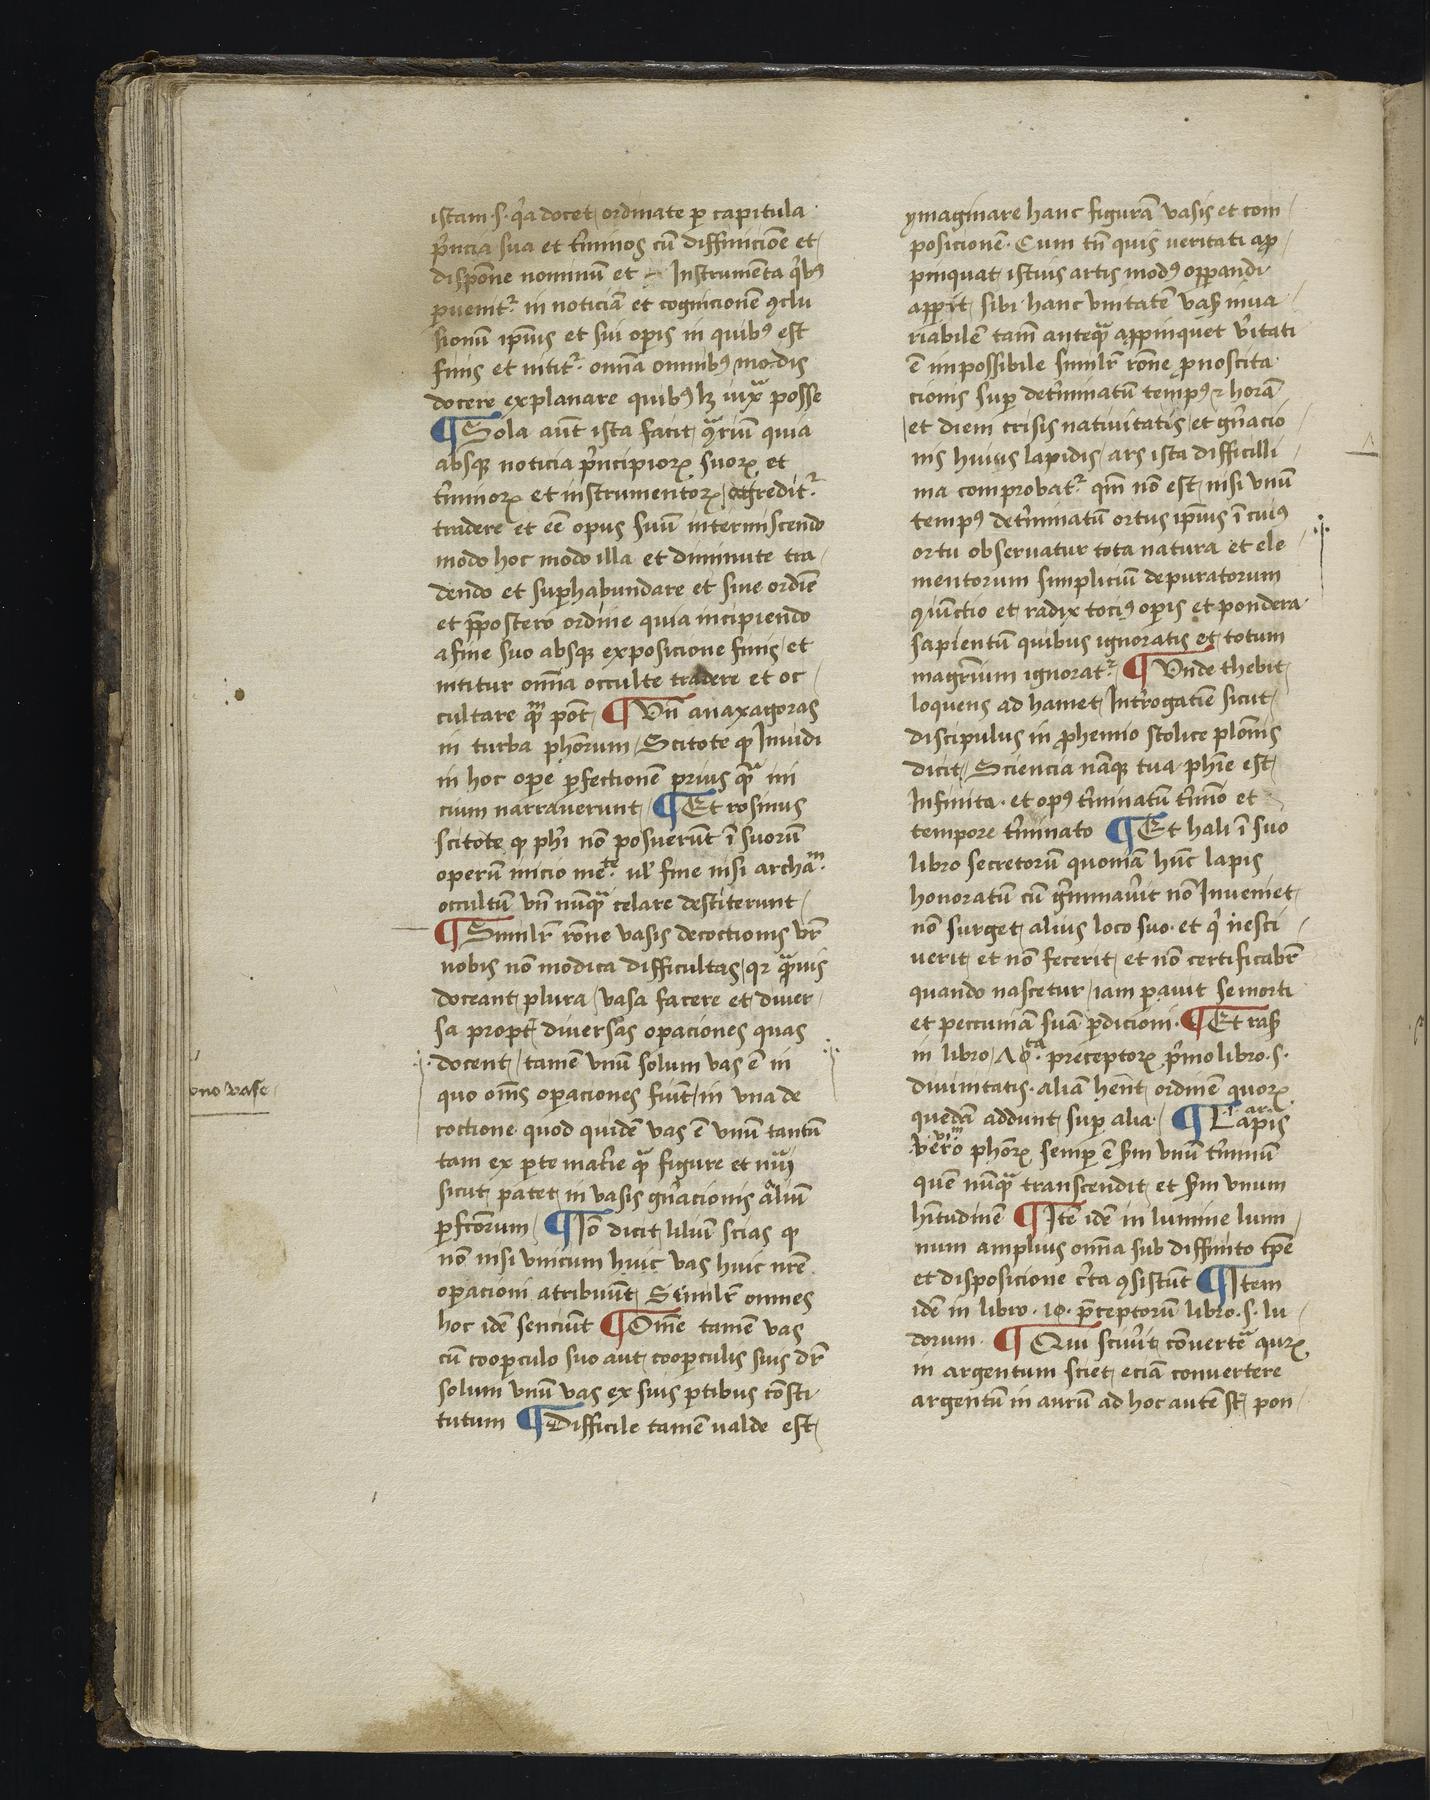 istam .s. q̇a docet ordinate ꝑ capitula
p̓ncia sua et t̓minos cū diffinicōe et
dispōne nominū et Instrumēta q̓bꝰ
ꝑuenitᷣ in noticiā et cognicionē ꝯclu
sionū ipīus et sui opis in quibꝰ est
finis et nititᷣ om̄ia omnibꝰ modis
docere explanare quibꝰ lꝫ iuxͣ posse
¶ Sola aūt ista facit ꝯͣriū quia
absqꝫ noticia p̓ncipioꝝ suoꝝ et
t̓minoꝝ et instrumentoꝝ
tradere et eē opus suū intermiscendo
modo hoc modo illa et diminute tra
dendo et suꝑhabundare et sine ordīe
et p̄postero ordine quia incipiendo
a fine suo absqꝫ exposicione finis et
nititur om̄ia occulte tradere et oc
cultare qͫ pōt ¶ Vn̄ anaxagoras
in turba ph̄orum Scitote ꝙ Inuidi
in hoc oꝑe ꝑfectionē prius qͣ ini
cium narrauerunt ¶ Et rosinus
scitote ꝙ ph̓i nō posuerūt ī suorū
operū inicio me.ᵗᵉ ul̓ fine nisi archa.ᵐ
occultū vn̄ nūqͣ celare destiterunt
¶ Simil̓r rōne vasis decoctionis vr̄
nobis nō modica difficultas qꝛ qͣuis
doceant plura vasa facere et diuer
sa propt̄ diuersas oꝑaciones quas
docent tamē vnū solum vas ē in
quo om̄s oꝑaciones fiūt in vna de
coctione quod quidē vas ē vnū tantū
tam ex ꝑte mat̓ie qͣ figure et nūi
sicut patet in vasis gn̓acionis aīaliū
ꝑfc̄orum ¶ Iō dicit liliū scias ꝙ
nō nisi vnicum huic vas huic nr̄e
oꝑacioni atribuūt Simil̓r omnes
hoc idē senciūt ¶ Om̄e tamē vas
cū cooꝑculo suo aut cooꝑculis suis dr̄
solum vnū vas ex suis ꝑtibus cōsti
tutum ¶ Difficile tamē valde est
ono vase
ymaginare hanc figurā vasis et com
posicionē. Cum tn̄ quis veritati aꝓ
pinquat istius artis modꝰ oꝑandi
aꝑit sibi hanc vnitatē vasꝭ inua
riabilē tam̄ anteqͣ aꝓpinquet v̓itati
ē impossibile simil̓r rōne ꝓnoscita
cionis suꝑ det̓minatū tempꝰ ⁊ horā
et diem crisis natiuitatis et gn̓acio
nis huius lapidis ars ista difficilli
ma comprobatᷣ qm̄ nō est nisi vnū
tempꝰ det̓minatū ortus ipīus ī cuiꝰ
ortu obseruatur tota natura et ele
mentorum simpliciū depuratorum
ꝯiūctio et radix tociꝰ oꝑis et pondera
sapientū quibus ignoratis et totum
magr̄ium ignoratᷣ ¶ Vnde thebit
loquens ad hamet Int̓rogatiē sicut
discipulus in ꝓhemio stolice plōnis
dicit Sciencia nāqꝫ tua phīe est
Infinita. et opꝰ t̓minatū t̓mīo et
tempore t̓minato ¶ Et hali ī suo
libro secretorū quoniā hūc lapis
honoratū cū g̓minau̓it nō Inueniet
nō surget alius loco suo. et q̓ nesci
uerit et nō fecerit et nō certificabr̄
quando nascetur iam ꝑauit se morti
et peccuniā suā ꝑdicioni. ¶ Et rasꝭ
in libro preceptoꝝ p̓mo libro .s.
diuinitatis. aliā hēnt ordinē quoꝝ
quedā addunt suꝑ alia. ¶ Lapis
vero ph̄oꝝ semper ē sm̄ vnū t̓minū
quē nūqͣ transcendit et sm̄ vnum
hītudinē ¶ Itē idē in lumine lumi
num amplius om̄ia sub diffinito tp̄e
et disposicione c̓ta ꝯsistūt ¶ Item
idē in libro .10. p̄ceptorū libro .s. lu
dorum. ¶ Qui sciu̓it cōuertͤ auꝝ
in argentum sciet eciā conuertere
argentū in aurū ad hoc autē st̄ pon